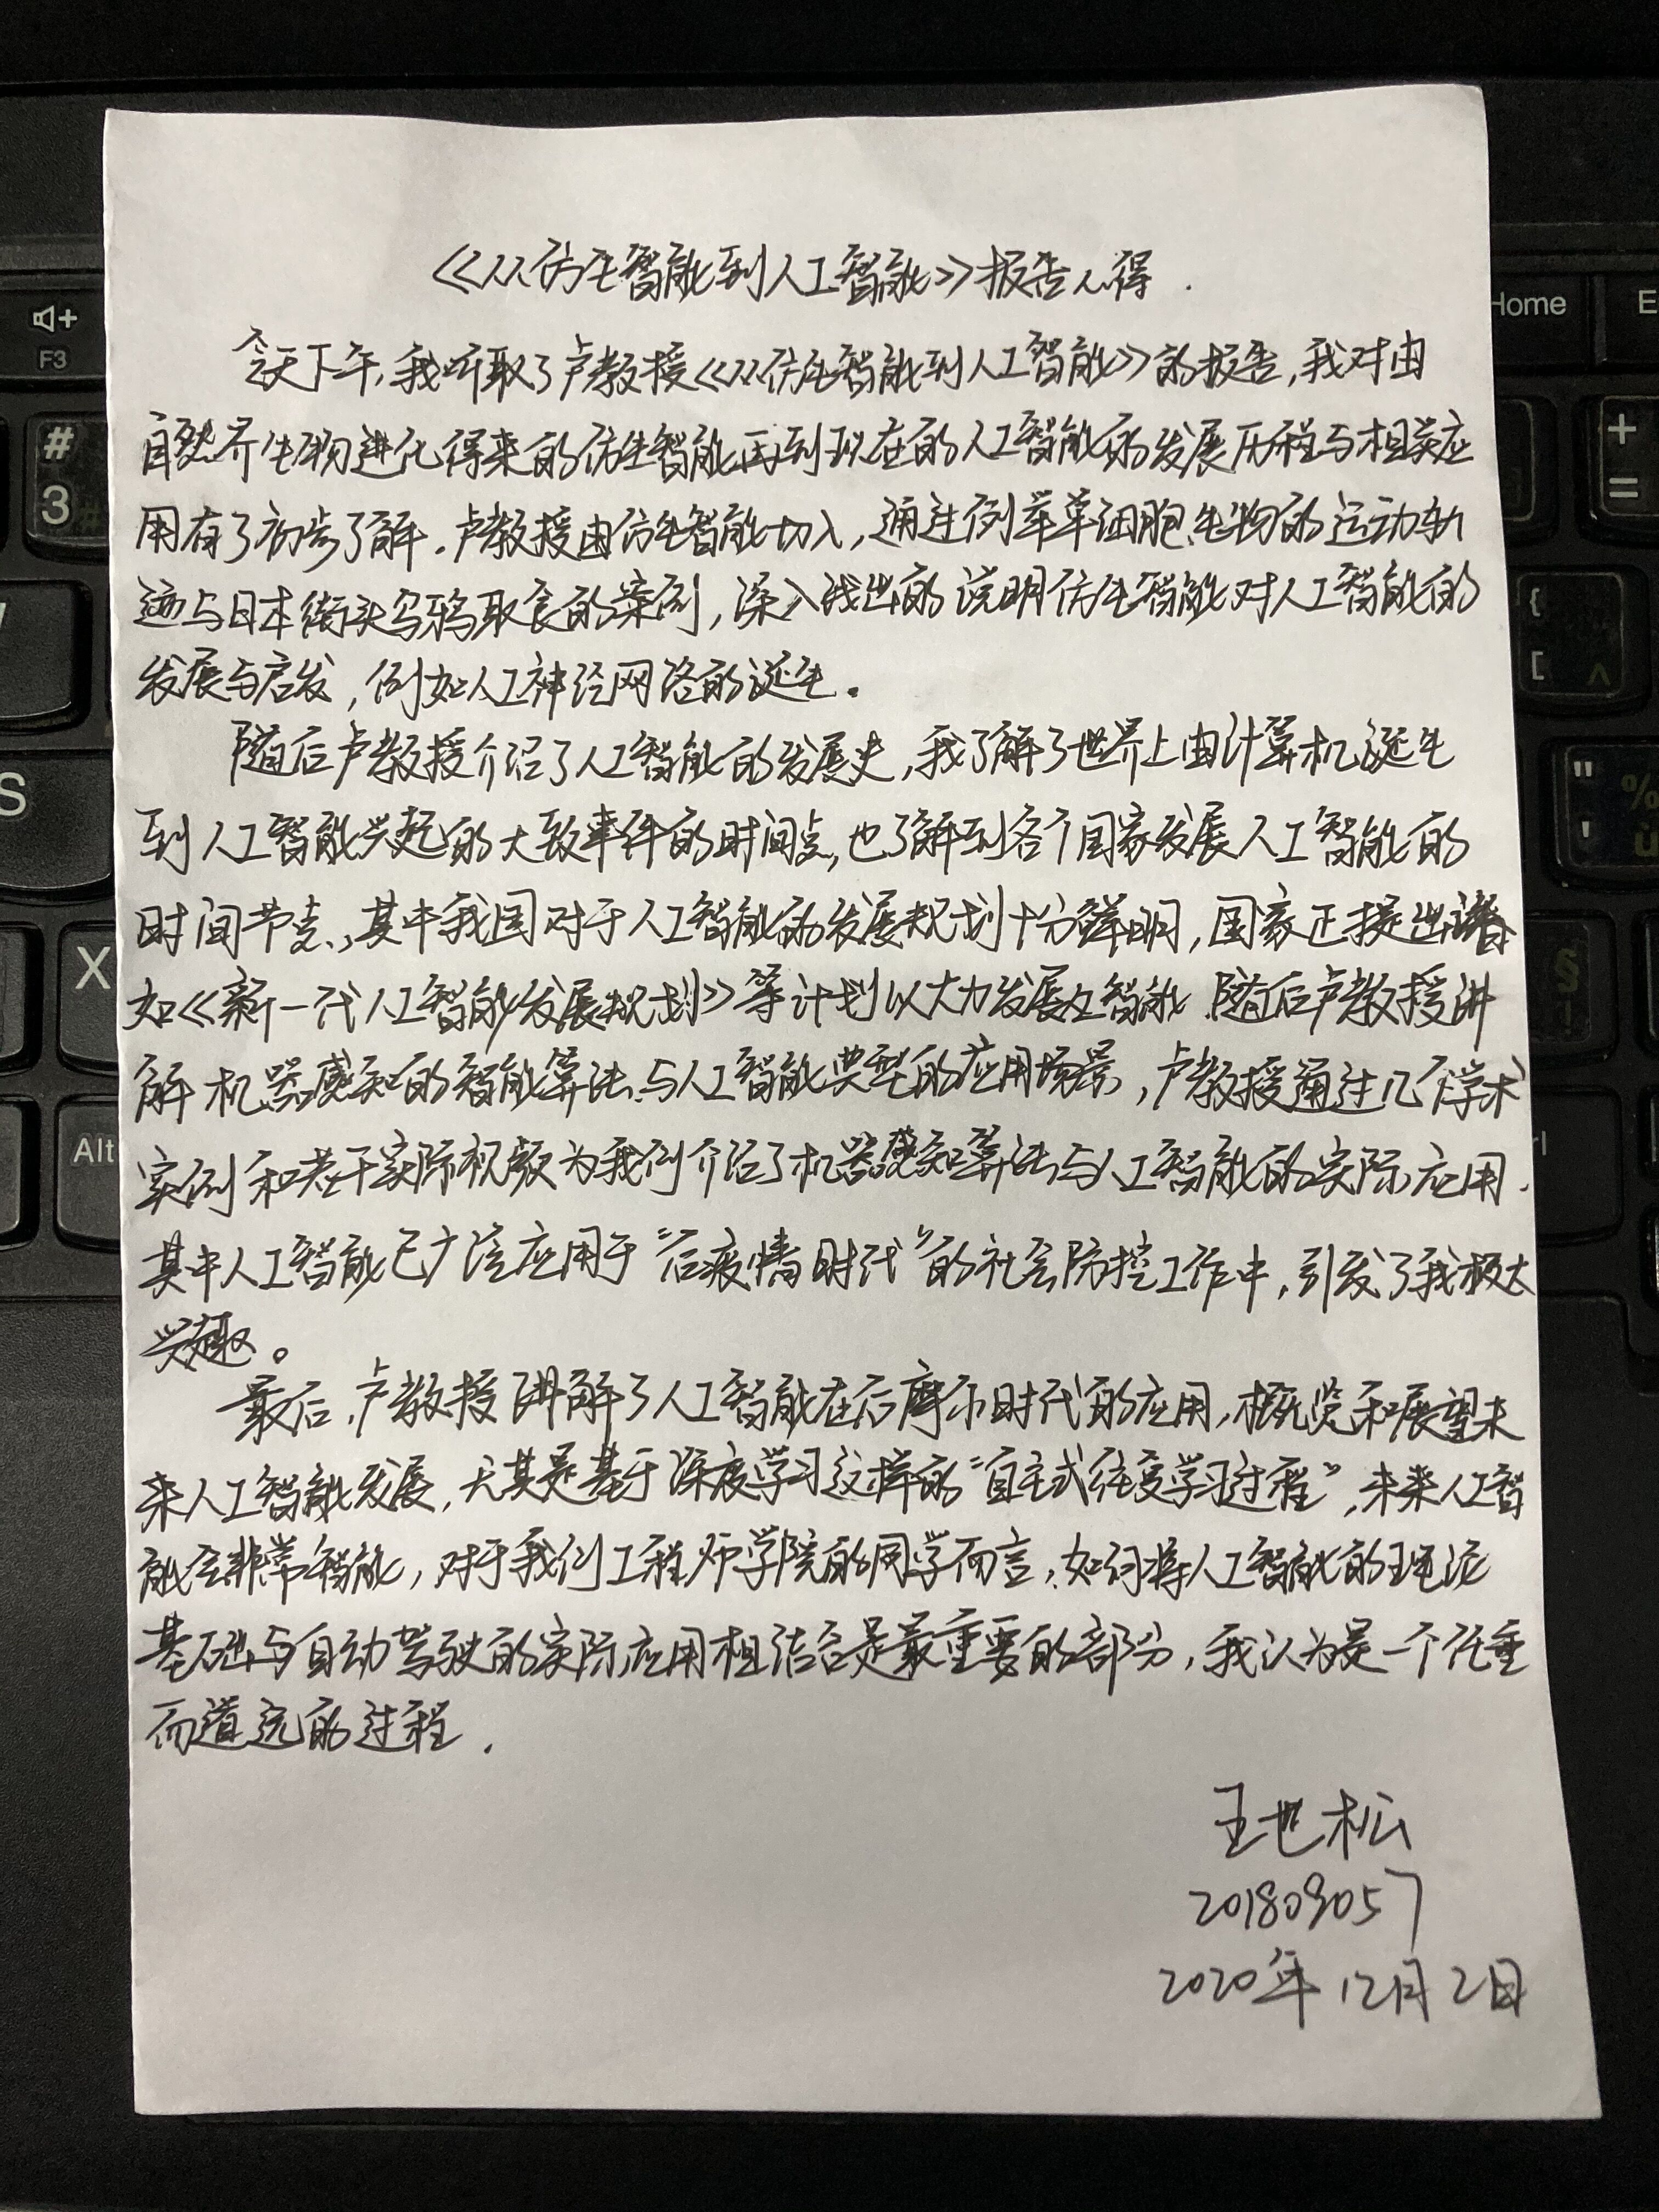 《从仿生智能到人工智能》报告心得.
今天下午,我听取了卢教授《从仿生智能到人工智能》的报告,我对由
自然界生物进化得来的仿生智能再到现在的人工智能的发展历程与相关应
用有了初步了解.卢教授由仿生智能切入,通过例举单细胞生物的运动轨
迹与日本街头乌鸦取食的案例,深入浅出的说明仿生智能对人工智能的
发展与启发,例如人工神经网络的诞生。
随后卢教授介绍了人工智能的发展史,我了解了世界上由计算机诞生
到人工智能兴起的大致事件的时间点,也了解到各个国家发展人工智能的
时间节点,其中我国对于人工智能的发展规划十分鲜明,国家正提出诸
如《新一代人工智能发展规划》等计划以大力发展人工智能.随后卢教授讲
解机器感知的智能算法与人工智能典型的应用场景,卢教授通过几个学术
实例和若干实际视频为我们介绍了机器感知算法与人工智能的实际应用.
其中人工智能已广泛应用于“后疫情时代”的社会防控工作中,引发了我极大
兴趣。
最后,卢教授讲解了人工智能在后摩尔时代的应用,概览和展望未
来人工智能发展,尤其是基于深度学习这样的“自主式往复学习过程”,未来人工智
能会非常智能,对于我们工程师学院的同学而言,如何将人工智能的理论
基础与自动驾驶的实际应用相结合是最重要的部分,我认为是一个任重
而道远的过程.
王世松
201809057
2020年12月2日
# 3
F3
Home
E
+ =
{ [
" '
S
X
Alt